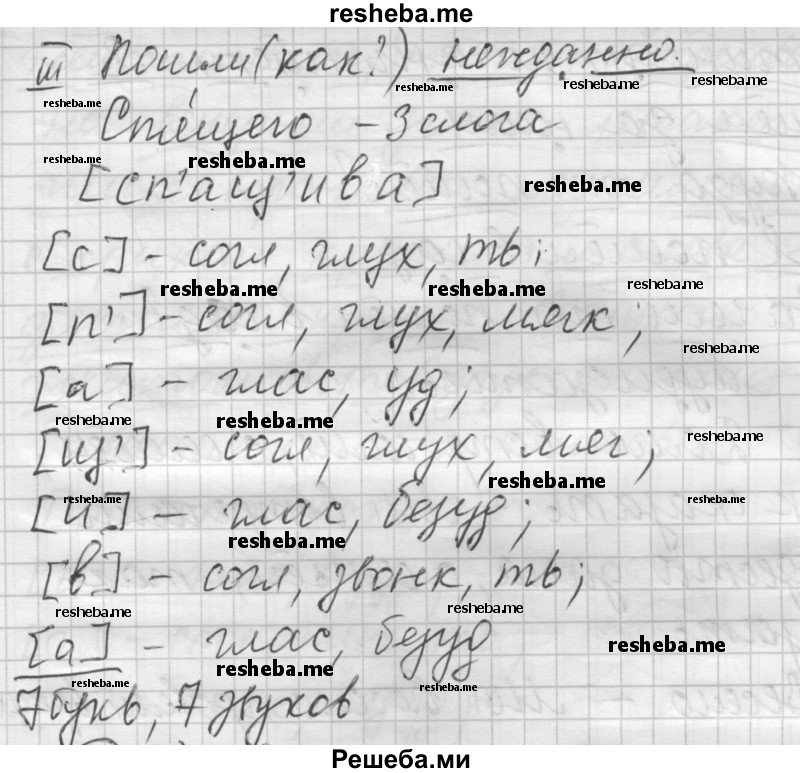 resheba.me
III Пошли (как?) нежданно.
resheba.me resheba.me resheba.me resheba.me
Спящего – 3 слога
resheba.me resheba.me
[сп'ащ'ива] resheba.me
[с] - согл, глух, тв;
resheba.me resheba.me resheba.me
[п'] - согл, глух, мягк;
resheba.me
[а] - глас, уд;
resheba.me resheba.me
[щ'] - согл, глух, мяг; resheba.me
resheba.me
[и] - глас, безуд;
resheba.me resheba.me
resheba.me
[в] - согл, звонк, тв;
resheba.me resheba.me
[а] - глас, безуд resheba.me
resheba.me resheba.me resheba.me
7 букв, 7 звуков
Решеба.ми